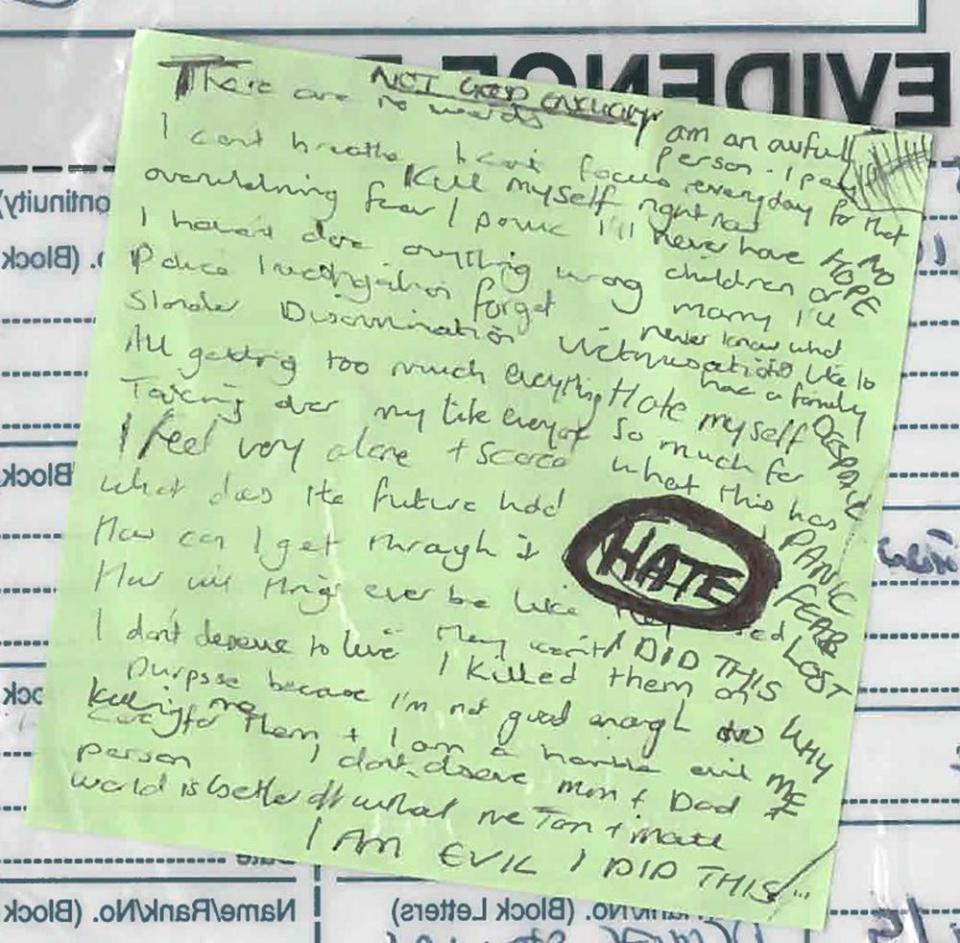 NOT GOOD ENOUGH
There are no words
I can't breathe I can't focus
overwhelming fear / panic
Kill myself right now
I haven't done anything wrong
Police Investigation forget
Slander Discrimination Victimisation
All getting too much everything
Taking over my life everyday
I feel very alone + scared
What does the future hold
How can I get through it
How will things ever be like
they
I don't deserve to live
I killed them on
purpose because I'm not good enough to
care for them, + I am a horrible evil
person
I don't deserve Mum + Dad
world is better off without me
killing me
I AM EVIL I DID THIS
I am an awful
person. I pay
everyday for that
I'll never have
children or
marry I'll
never know what
it's like to
have a family
Hate myself
so much for
what this has
HATE
I DID THIS
NO
HOPE
DESPAIR
PANIC
FEAR
LOST
WHY
ME
EVIDENCE
No. (Block
Block
Name/Rank/No. (Block
/No. (Block Letters)